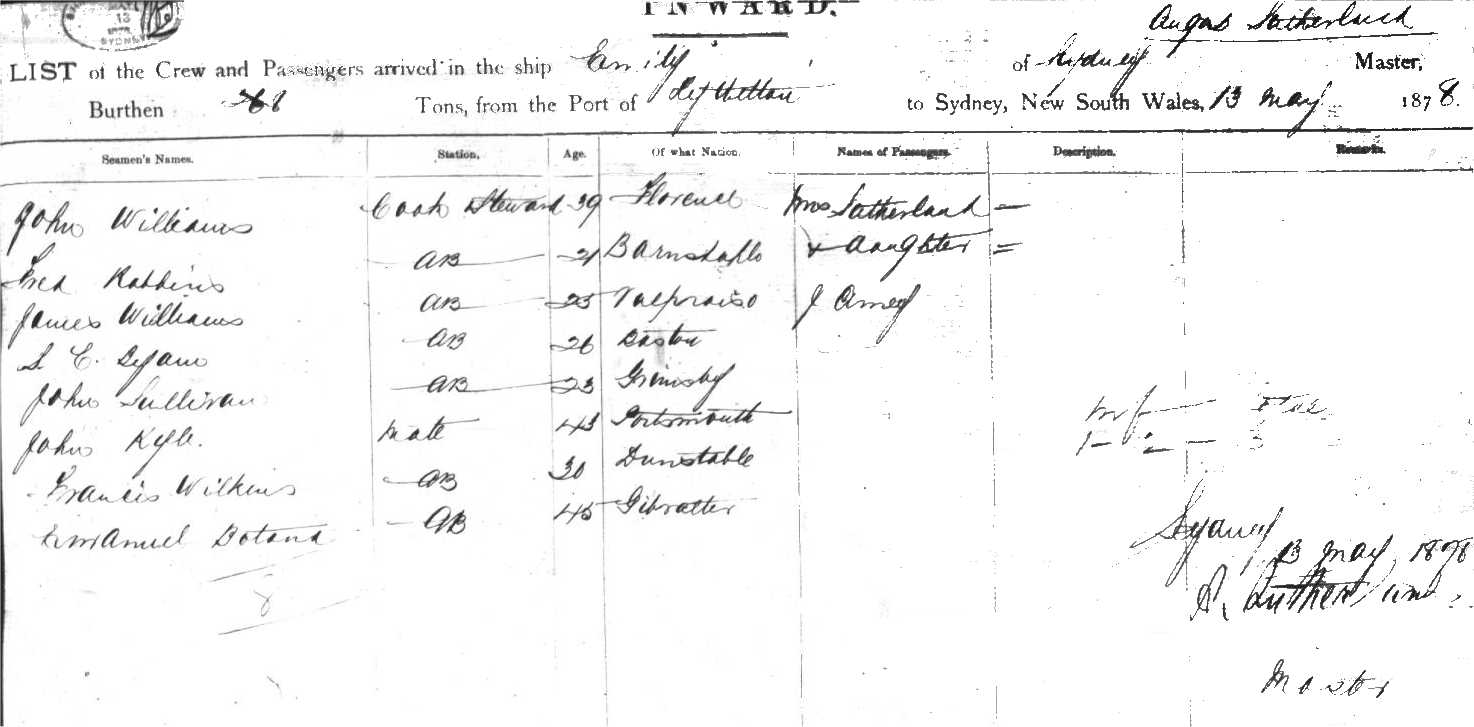 MAY
13
1878
SYDNEY
INWARD.
Angus Sutherland
LIST of the Crew and Passengers arrived in the ship Emily of Sydney Master,
Burthen Tons, from the Port of to Sydney, New South Wales, 13 May 1878.
Seamen's Names. Station. Age. Of what Nation. Names of Passengers. Description. Remarks.
John Williams Cook Steward 39 Florence Mrs Sutherland —
Fred Robbins AB 21 Barnstaple + daughter =
James Williams AB 23 Valpraiso J Amey
S E. AB 26 Boston
John Sullivan AB 23 Grimsby
John Kyle. Mate 43 Portsmouth
Francis Wilkins AB 30 Dunstable
Emanuel Botana AB 45 Gibratter
8
1 — 2 — 3
Sydney
13 May 1878
A. Sutherland
Master